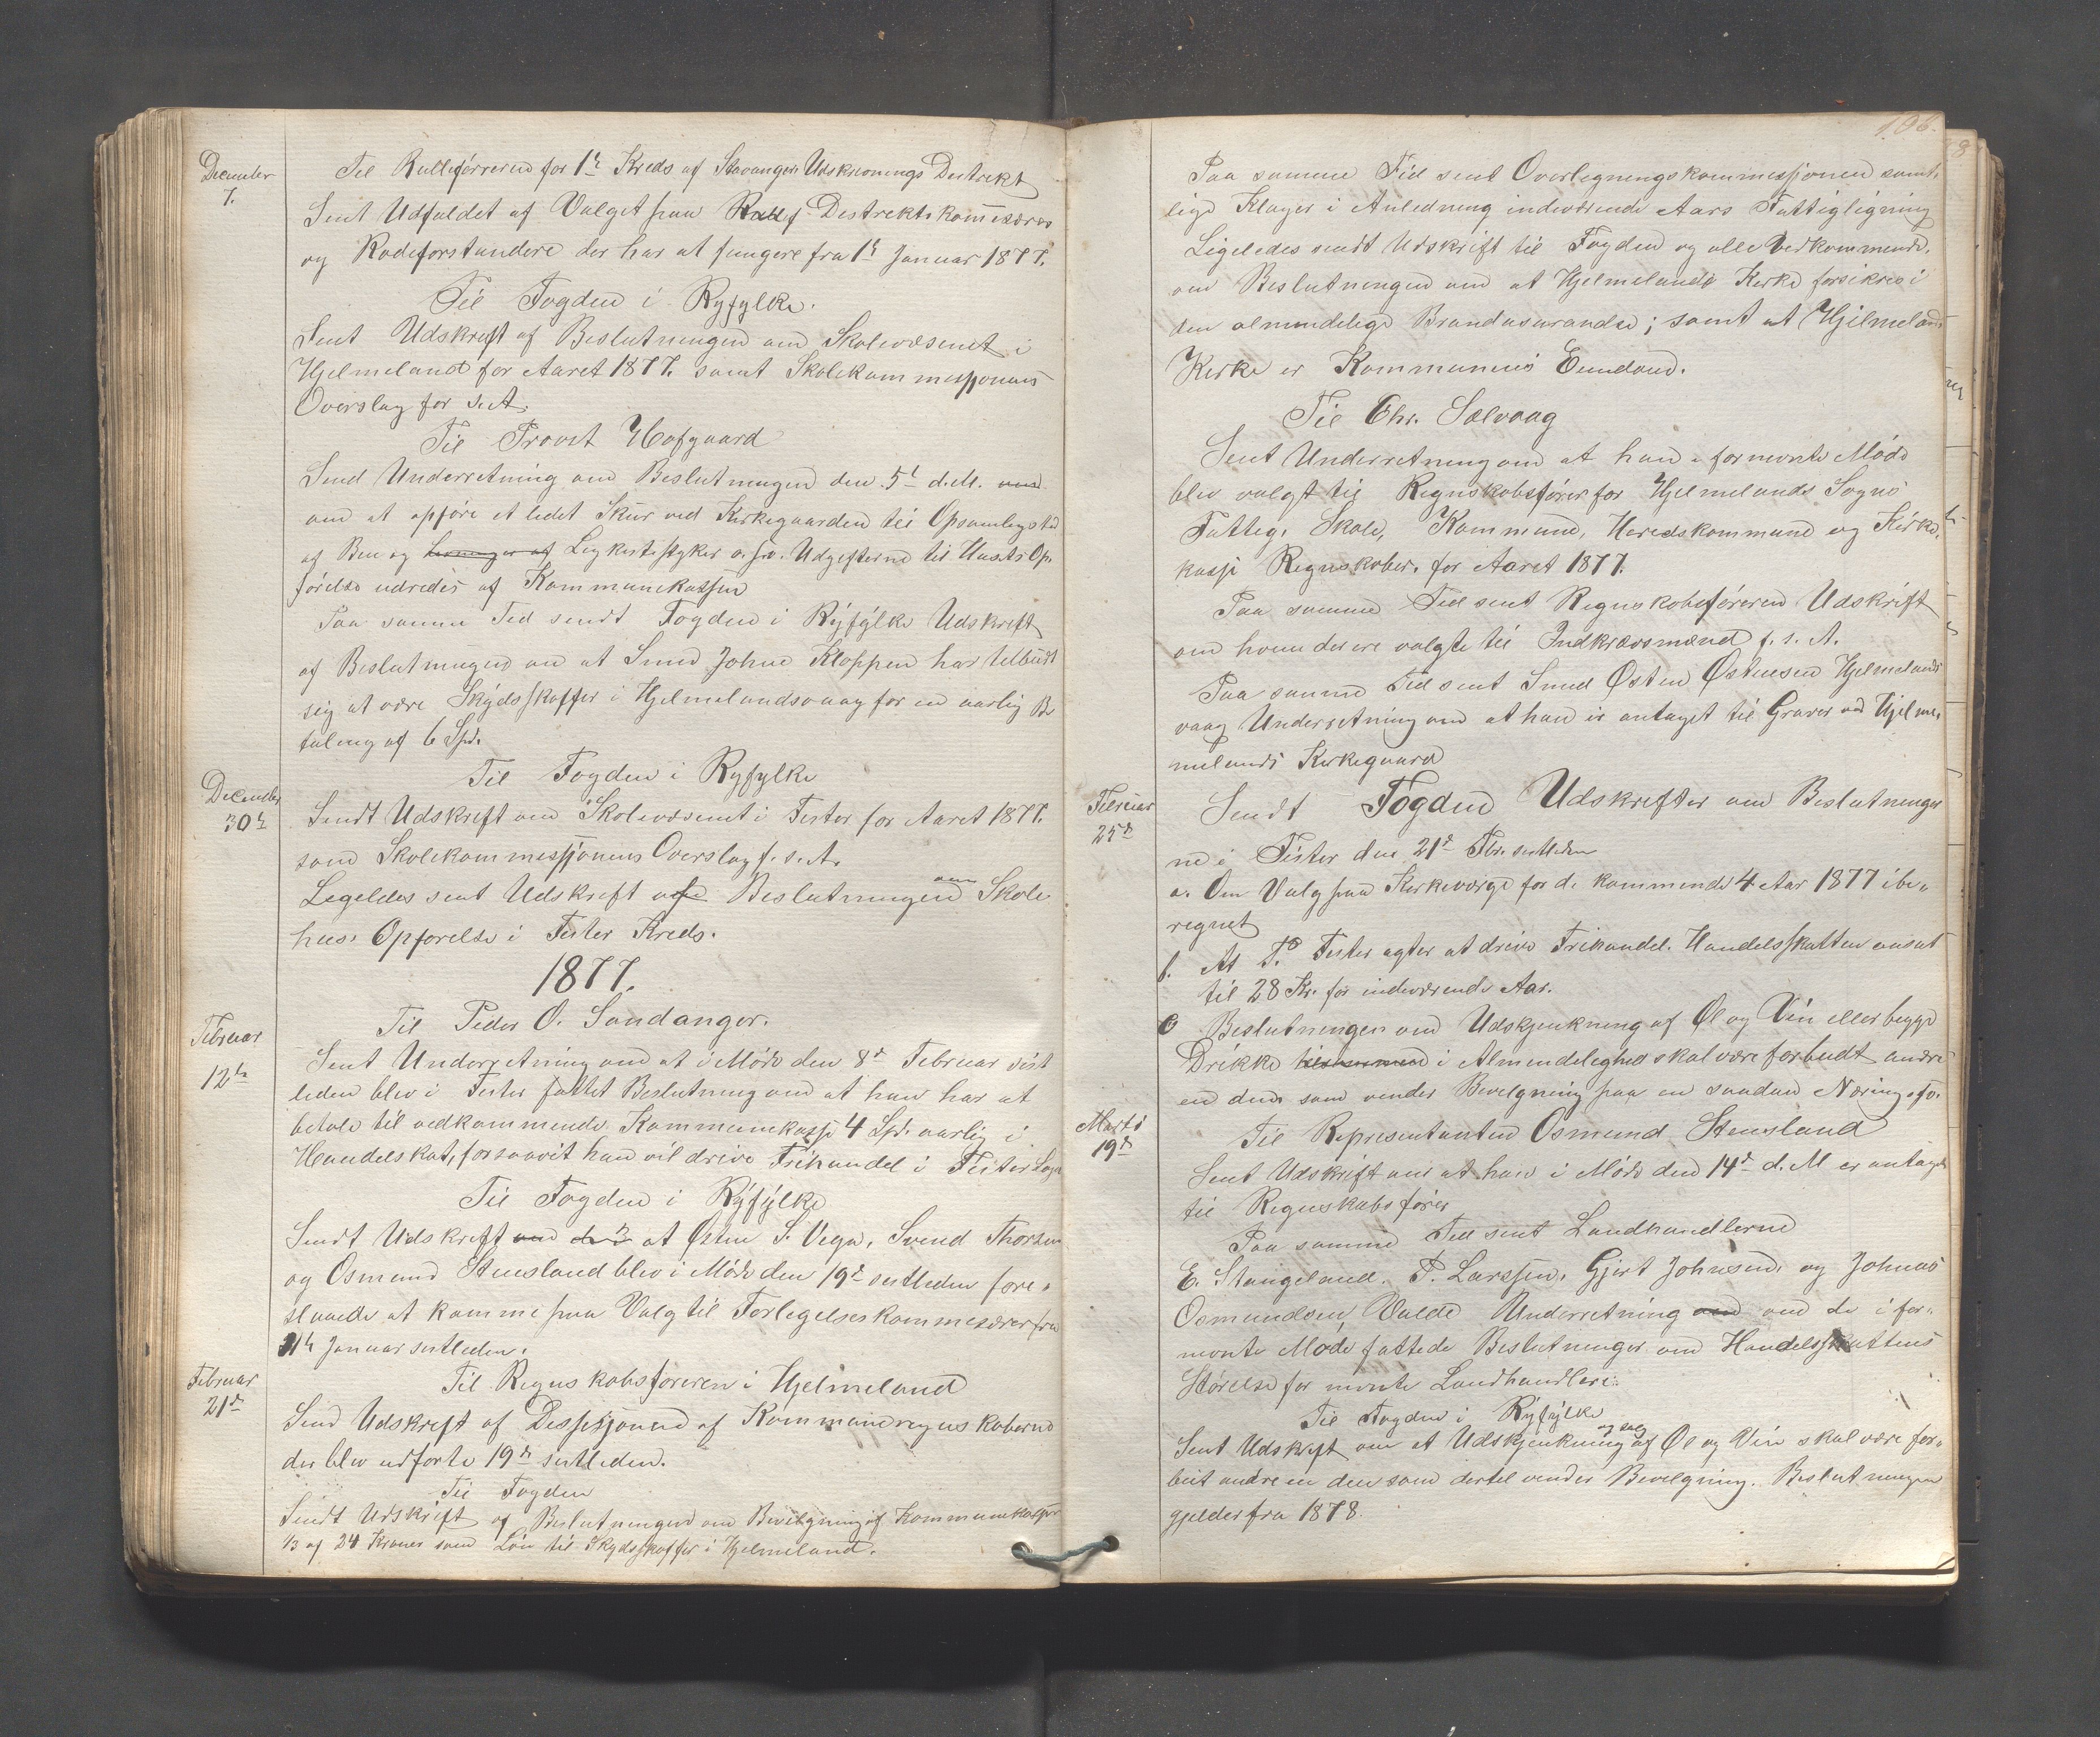 December
7.
Til Rulleførreren for 1ste Kreds af Stavanger Udskrivnings Destrekt
Sent Udfaldet af Valget paa Rullef Destrekts kommesærer
og Rodeforstandere der har at fungere fra 1ste Januar 1877.
Til Fogden i Ryfylke.
Sent Udskreft af Beslutningen om Skolevæsenet i
Hjelmeland for Aaret 1877. samt Skolekommissjonens
Overslag for s. A.
Til Provst Hofgaard
Send Underretning om Beslutningen den 5t d. M. om
om at opføre et lidet Skur ved Kirkegaarden til Opsamlingsted
af Ben og Levninger af Legkistestyker o. s. v. Udgifterne til Husets Op-
førelse udredes af Kommunekassen
Paa samme Tid sendt Fogden i Ryfylke Udskreft
af Beslutningen om at Svend Johne Kloppen har telbudt
sig at være Skydsskaffer i Hjelmelandsvaag for en aarlig Be
taling af 6 Spd.
December
30te
Til Fogden i Ryfylke
Sendt Udskreft om Skolevæsenet i Fister for Aaret 1877.
som Skolekommessjonens Overslag f. s. A.
Legeldes sent Udskreft af Beslutningen om Skole
hus. Opførelse i Fister Kreds.
1877.
Februar
12te
Til Peder O. Sandanger.
Sent Underretning om at i Møde den 8de Februar sist
leden blev i Fister fattet Beslutning om at han har at
betale til vedkommende Kommunekasse 4 Spd. aarlig i
Handelskat, forsaavit han vil drive Frihandel i Fister Sogn
Til Fogden i Ryfylke
Sendt Udskreft om de at Østen S. Vega, Svend Thorsen
og Osmund Stensland blev i Møde den 19de sistleden fore-
slaaede at komme paa Valg til Forlegelseskommesærer fra
1te Januar sistleden.
Februar
21de
Til Regnskabsføreren i Hjelmeland
Send Udskreft af Dessesjonen af Kommuneregnskaberne
der blev udførte 19de sistleden.
Til Fogden
Sendt Udskrift af Beslutningen om Bevilgning af Kommunekassen
1/3 af 24 Kroner som Løn til Skydsskaffer i Hjelmeland.
106.
Paa samme Tid sent Overlegningskommissjonen samt-
lige Klager i Anledning indeværende Aars Fattigligning
Ligeledes sendt Udskrift til Fogden og alle Vedkommende.
om Beslutningen om at Hjelmelands Kerke forsikres i
den almindelige Brandasurandse; samt at Hjelmelands
Kirke er Kommunens Eiendom.
Til Chr. Sælvaag
Sent Underretning om at han i formente Møde
blev valgt til Regnskabsfører for Hjelmelands Sogns
Fatteg, Skole, Kommune, Heredskommune og Kirke.
kasse Regnskaber. for Aaret 1877.
Paa samme Tid sent Regnskabsføreren Udskrift
om hvem der ere valgte til Indkrævsmænd f. s. A.
Paa samme Tid sent Svend Østen Østensen Hjelmelands
vaag Underretning om at han er antaget til Graver ved Hjelme-
melands Kirkegaard
Februar
25de
Sendt Fogden Udskrefter om Beslutninger
ne i Fister den 21de Fbr. sistleden
a. Om Valg paa Kirkeværge for de kommende 4 Aar 1877 ibe-
regnet
b. At P. Fister agter at drive Frihandel. Handelsskatten ansat
til 28 Kr. for indeværende Aar.
c Beslutningen om Udskjenkning af Øl og Vin eller begge
Drikke i Almendeleghed skal være forbudt andre
en dem som vender Bevelgning paa en saadan Næringsfo.
Marts
19de
Til Representanten Osmund Stensland
Sent Udskrift om at han i Møde den 14de d. M er antaget
til Regnskabsfører
Paa samme Tid sent Landhandlerne
E. Stangeland. P. Larssen, Gjert Johnsen, og Johnas
Osmundsen, Valde Underretning om om de i for-
mente Møde fattede Beslutninger om Handelsskattens
Størelse for mente Landhandlere.
Til Fogden i Ryfylke
Sent Udskrift om at Udskjenkning og salg af Øl og Vin skal være for-
biut andre en den som dertel vender Bevelgning. Beslutningen
gjelder fra 1878.